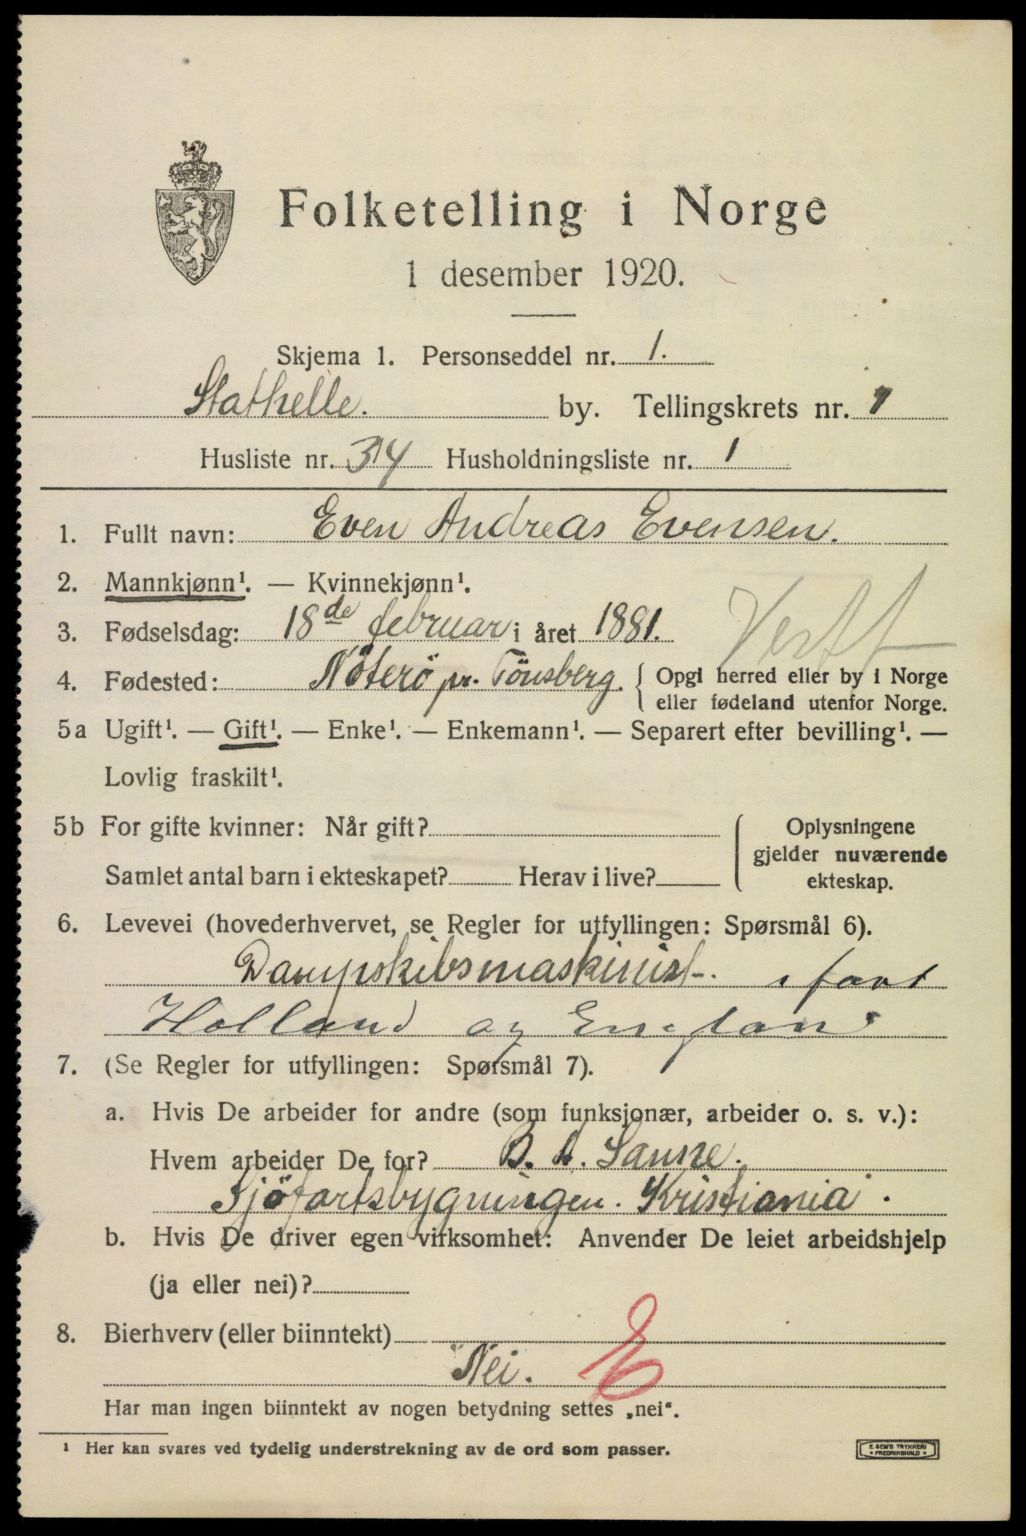 Folketelling i Norge
1 desember 1920.
Skjema 1. Personseddel nr. 1.
Stathelle. by. Tellingskrets nr. 1
Husliste nr. 34 Husholdningsliste nr. 1
1. Fullt navn: Even Andreas Evensen.
2. Mannkjønn¹. — Kvinnekjønn¹.
3. Fødselsdag: 18de februar i året 1881.
Vestf
4. Fødested: Nöterö pr. Tönsberg. { Opgi herred eller by i Norge
eller fødeland utenfor Norge.
5a Ugift¹. — Gift¹. — Enke¹. — Enkemann¹. — Separert efter bevilling¹. —
Lovlig fraskilt¹.
5b For gifte kvinner: Når gift?
Samlet antal barn i ekteskapet? Herav i live?
Oplysningene
gjelder nuværende
ekteskap.
6. Levevei (hovederhvervet, se Regler for utfyllingen: Spørsmål 6).
Dampskibsmaskinist. i fart
Holland og England
7. (Se Regler for utfyllingen: Spørsmål 7).
a. Hvis De arbeider for andre (som funksjonær, arbeider o. s. v.):
Hvem arbeider De for? B. A. Sanne.
Sjöfartsbygningen. Kristiania.
b. Hvis De driver egen virksomhet: Anvender De leiet arbeidshjelp
(ja eller nei)?
8. Bierhverv (eller biinntekt)
Nei. E
Har man ingen biinntekt av nogen betydning settes „nei“.
¹ Her kan svares ved tydelig understrekning av de ord som passer.
E. SEM'S TRYKKERI
FREDRIKSHALD